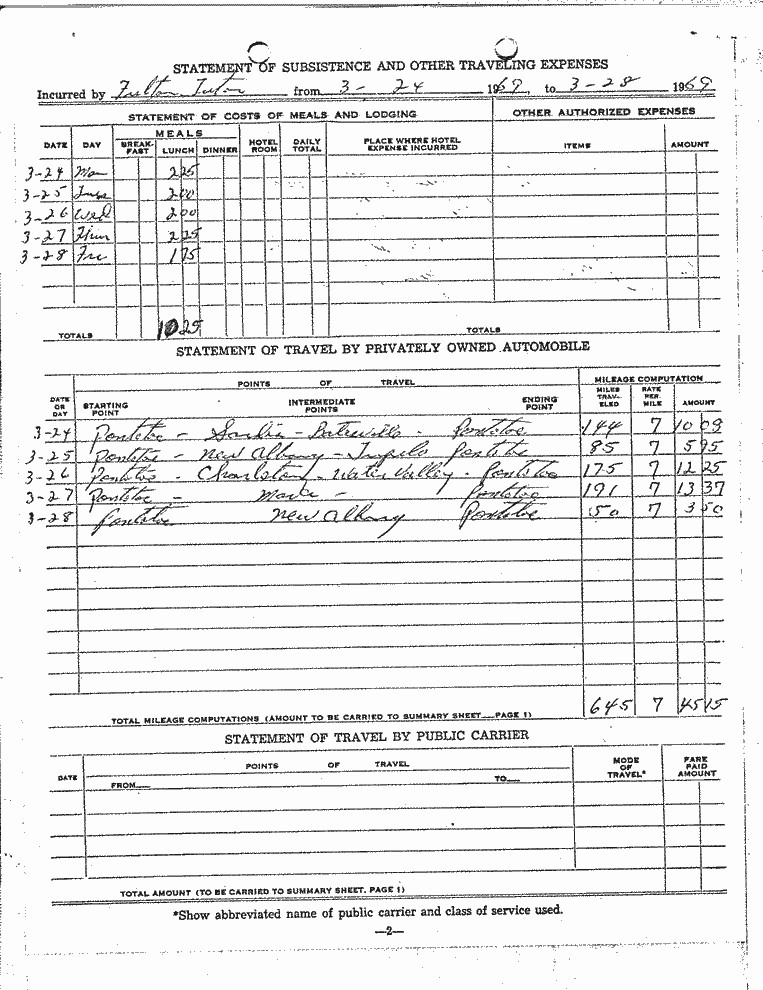 STATEMENT OF SUBSISTENCE AND OTHER TRAVELING EXPENSES
Incurred by Fulton Tutor from 3-24 1969, to 3-28 1969
STATEMENT OF COSTS OF MEALS AND LODGING OTHER AUTHORIZED EXPENSES
DATE DAY MEALS BREAK-FAST LUNCH DINNER HOTEL ROOM DAILY TOTAL PLACE WHERE HOTEL EXPENSE INCURRED ITEMS AMOUNT
3-24 Mon 2 25
3-25 Tues 2 00
3-26 Wed 2 00
3-27 Thur 2 25
3-28 Fri 1 75
TOTALS 10 25 TOTALS
STATEMENT OF TRAVEL BY PRIVATELY OWNED AUTOMOBILE
POINTS OF TRAVEL MILEAGE COMPUTATION
DATE OR DAY STARTING POINT INTERMEDIATE POINTS ENDING POINT MILES TRAV-ELED RATE PER MILE AMOUNT
3-24 Pontotoc - Sardis - Batesville - Pontotoc 144 7 10 08
3-25 Pontotoc - New Albany - Tupelo Pontotoc 85 7 5 95
3-26 Pontotoc - Charleston - Water Valley - Pontotoc 175 7 12 25
3-27 Pontotoc - - Pontotoc 191 7 13 37
3-28 Pontotoc New Albany Pontotoc 50 7 3 50
TOTAL MILEAGE COMPUTATIONS (AMOUNT TO BE CARRIED TO SUMMARY SHEET PAGE 1) 645 7 45 15
STATEMENT OF TRAVEL BY PUBLIC CARRIER
DATE POINTS OF TRAVEL MODE OF TRAVEL* FARE PAID AMOUNT
FROM TO
TOTAL AMOUNT (TO BE CARRIED TO SUMMARY SHEET, PAGE 1)
*Show abbreviated name of public carrier and class of service used.
—2—